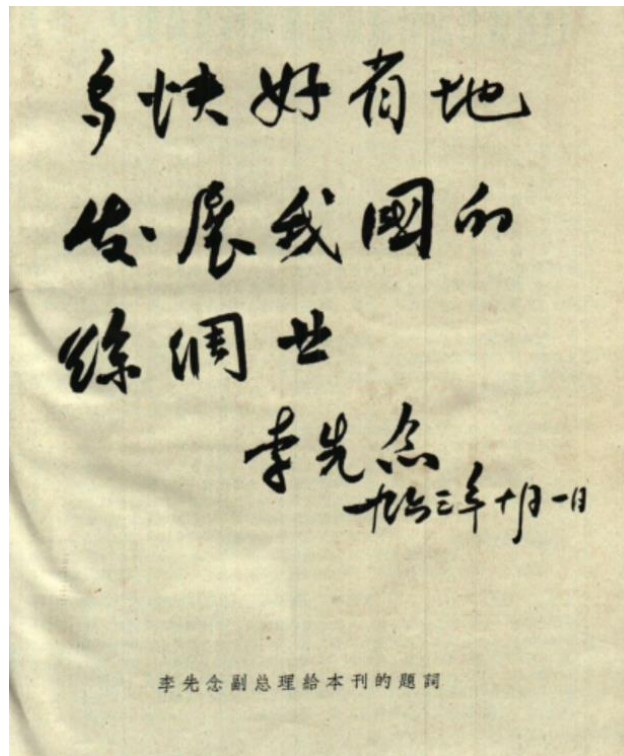 多快好省地
发展我國的
丝绸业
李先念
一九六三年十月一日
李先念副总理給本刊的題詞